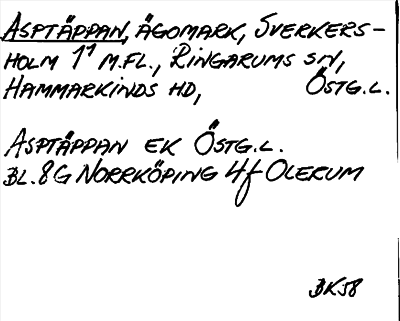 ASPTÄPPAN, ÄGOMARK, SVERKERS-
HOLM 1¹ M.FL., RINGARUMS SN,
HAMMARKINDS HD, ÖSTG.L.
ASPTÄPPAN EK ÖSTG.L.
BL. 8G NORRKÖPING 4f OLERUM
BK58